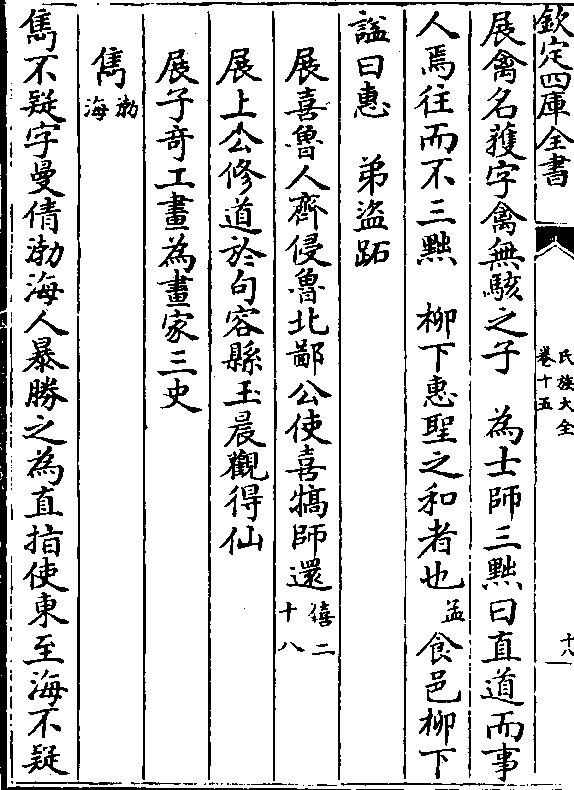 欽定四庫全書
氏族大全
卷十五
十八
展禽名獲字禽無駭之子　為士師三黜曰直道而事
人焉往而不三黜　柳下惠聖之和者也孟食邑柳下
諡曰惠　弟盜跖
展喜魯人齊侵魯北鄙公使喜犒師還僖二十八
展上公修道於句容縣玉晨觀得仙
展子奇工畫為畫家三史
雋渤海
雋不疑字曼倩渤海人暴勝之為直指使東至海不疑